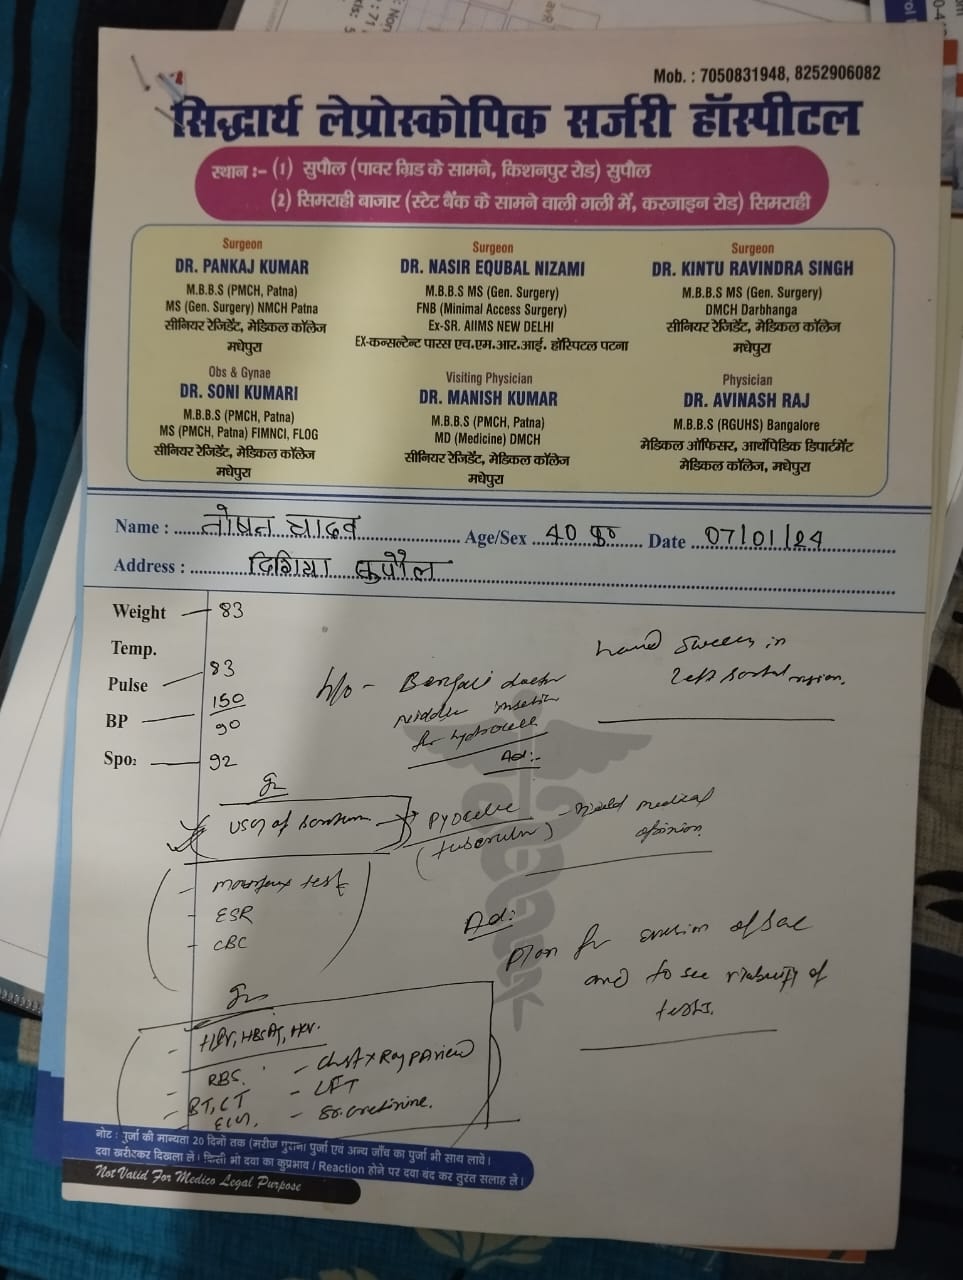 Mob. : 7050831948, 8252906082
सिद्धार्थ लेप्रोस्कोपिक सर्जरी हॉस्पीटल
स्थान :- (1) सुपौल (पावर ग्रिड के सामने, किशनपुर रोड) सुपौल
(2) सिमराही बाजार (स्टेट बैंक के सामने वाली गली में, करजाइन रोड) सिमराही
Surgeon
DR. PANKAJ KUMAR
M.B.B.S (PMCH, Patna)
MS (Gen. Surgery) NMCH Patna
सीनियर रेजिडेंट, मेडिकल कॉलेज
मधेपुरा
Surgeon
DR. NASIR EQUBAL NIZAMI
M.B.B.S MS (Gen. Surgery)
FNB (Minimal Access Surgery)
Ex-SR. AIIMS NEW DELHI
EX-कन्सल्टेन्ट पारस एच.एम.आर.आई. हॉस्पिटल पटना
Surgeon
DR. KINTU RAVINDRA SINGH
M.B.B.S MS (Gen. Surgery)
DMCH Darbhanga
सीनियर रेजिडेंट, मेडिकल कॉलेज
मधेपुरा
Obs & Gynae
DR. SONI KUMARI
M.B.B.S (PMCH, Patna)
MS (PMCH, Patna) FIMNCI, FLOG
सीनियर रेजिडेंट, मेडिकल कॉलेज
मधेपुरा
Visiting Physician
DR. MANISH KUMAR
M.B.B.S (PMCH, Patna)
MD (Medicine) DMCH
सीनियर रेजिडेंट, मेडिकल कॉलेज
मधेपुरा
Physician
DR. AVINASH RAJ
M.B.B.S (RGUHS) Bangalore
मेडिकल ऑफिसर, आर्थोपेडिक डिपार्टमेंट
मेडिकल कॉलेज, मधेपुरा
Name : तोषन यादव Age/Sex 40 पु० Date 07/01/24
Address :
Weight 83
Temp.
Pulse 83
BP 150/90
Spo2 92
h/o - Bengali doctor
for hydrocele
Ad:-
USG of Scrotum → Pyocele
- Need medical
opinion
- mountoux test
- ESR
- CBC
Ad:
Plan for eversion of Sac
and to see viability of
testis.
- HIV, HBsAg, HCV.
- RBS.
- BT, CT
- Chest x Ray PA view
- LFT
- Sr. creatinine.
नोट : पुर्जा की मान्यता 20 दिनों तक (मरीज पुराना पुर्जा एवं अन्य जाँच का पुर्जा भी साथ लावें।
दवा खरीदकर दिखला ले। किसी भी दवा का कुप्रभाव / Reaction होने पर दवा बंद कर तुरंत सलाह ले।
Not Valid For Medico Legal Purpose